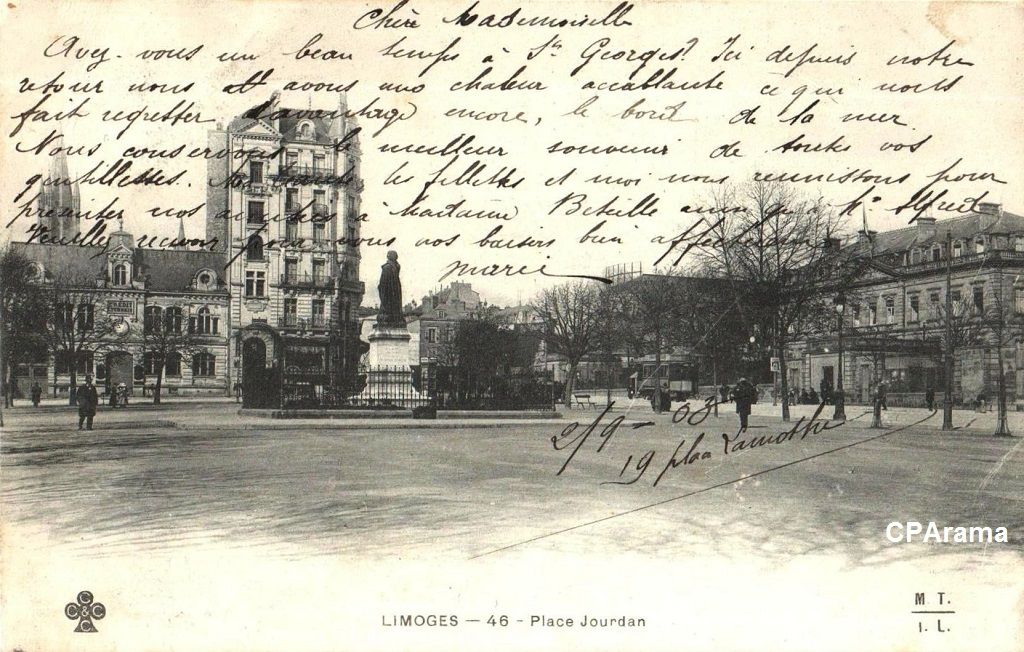 Chère Mademoiselle
Avez-vous un beau temps à St Georges? Ici depuis notre
retour nous avons une chaleur accablante ce qui nous
fait regretter davantage encore, le bord de la mer.
Nous conservons le meilleur souvenir de toutes vos
gentillesses. les fillettes et moi nous réunissons pour
présenter nos amitiés à Madame Béteille ainsi qu'à Mr Alfred
Veuillez recevoir pour vous nos baisers bien affectueux
Marie
2/9-03
19 place Lamothe
CPArama
C C C C
LIMOGES - 46 - Place Jourdan
M T.
I. L.